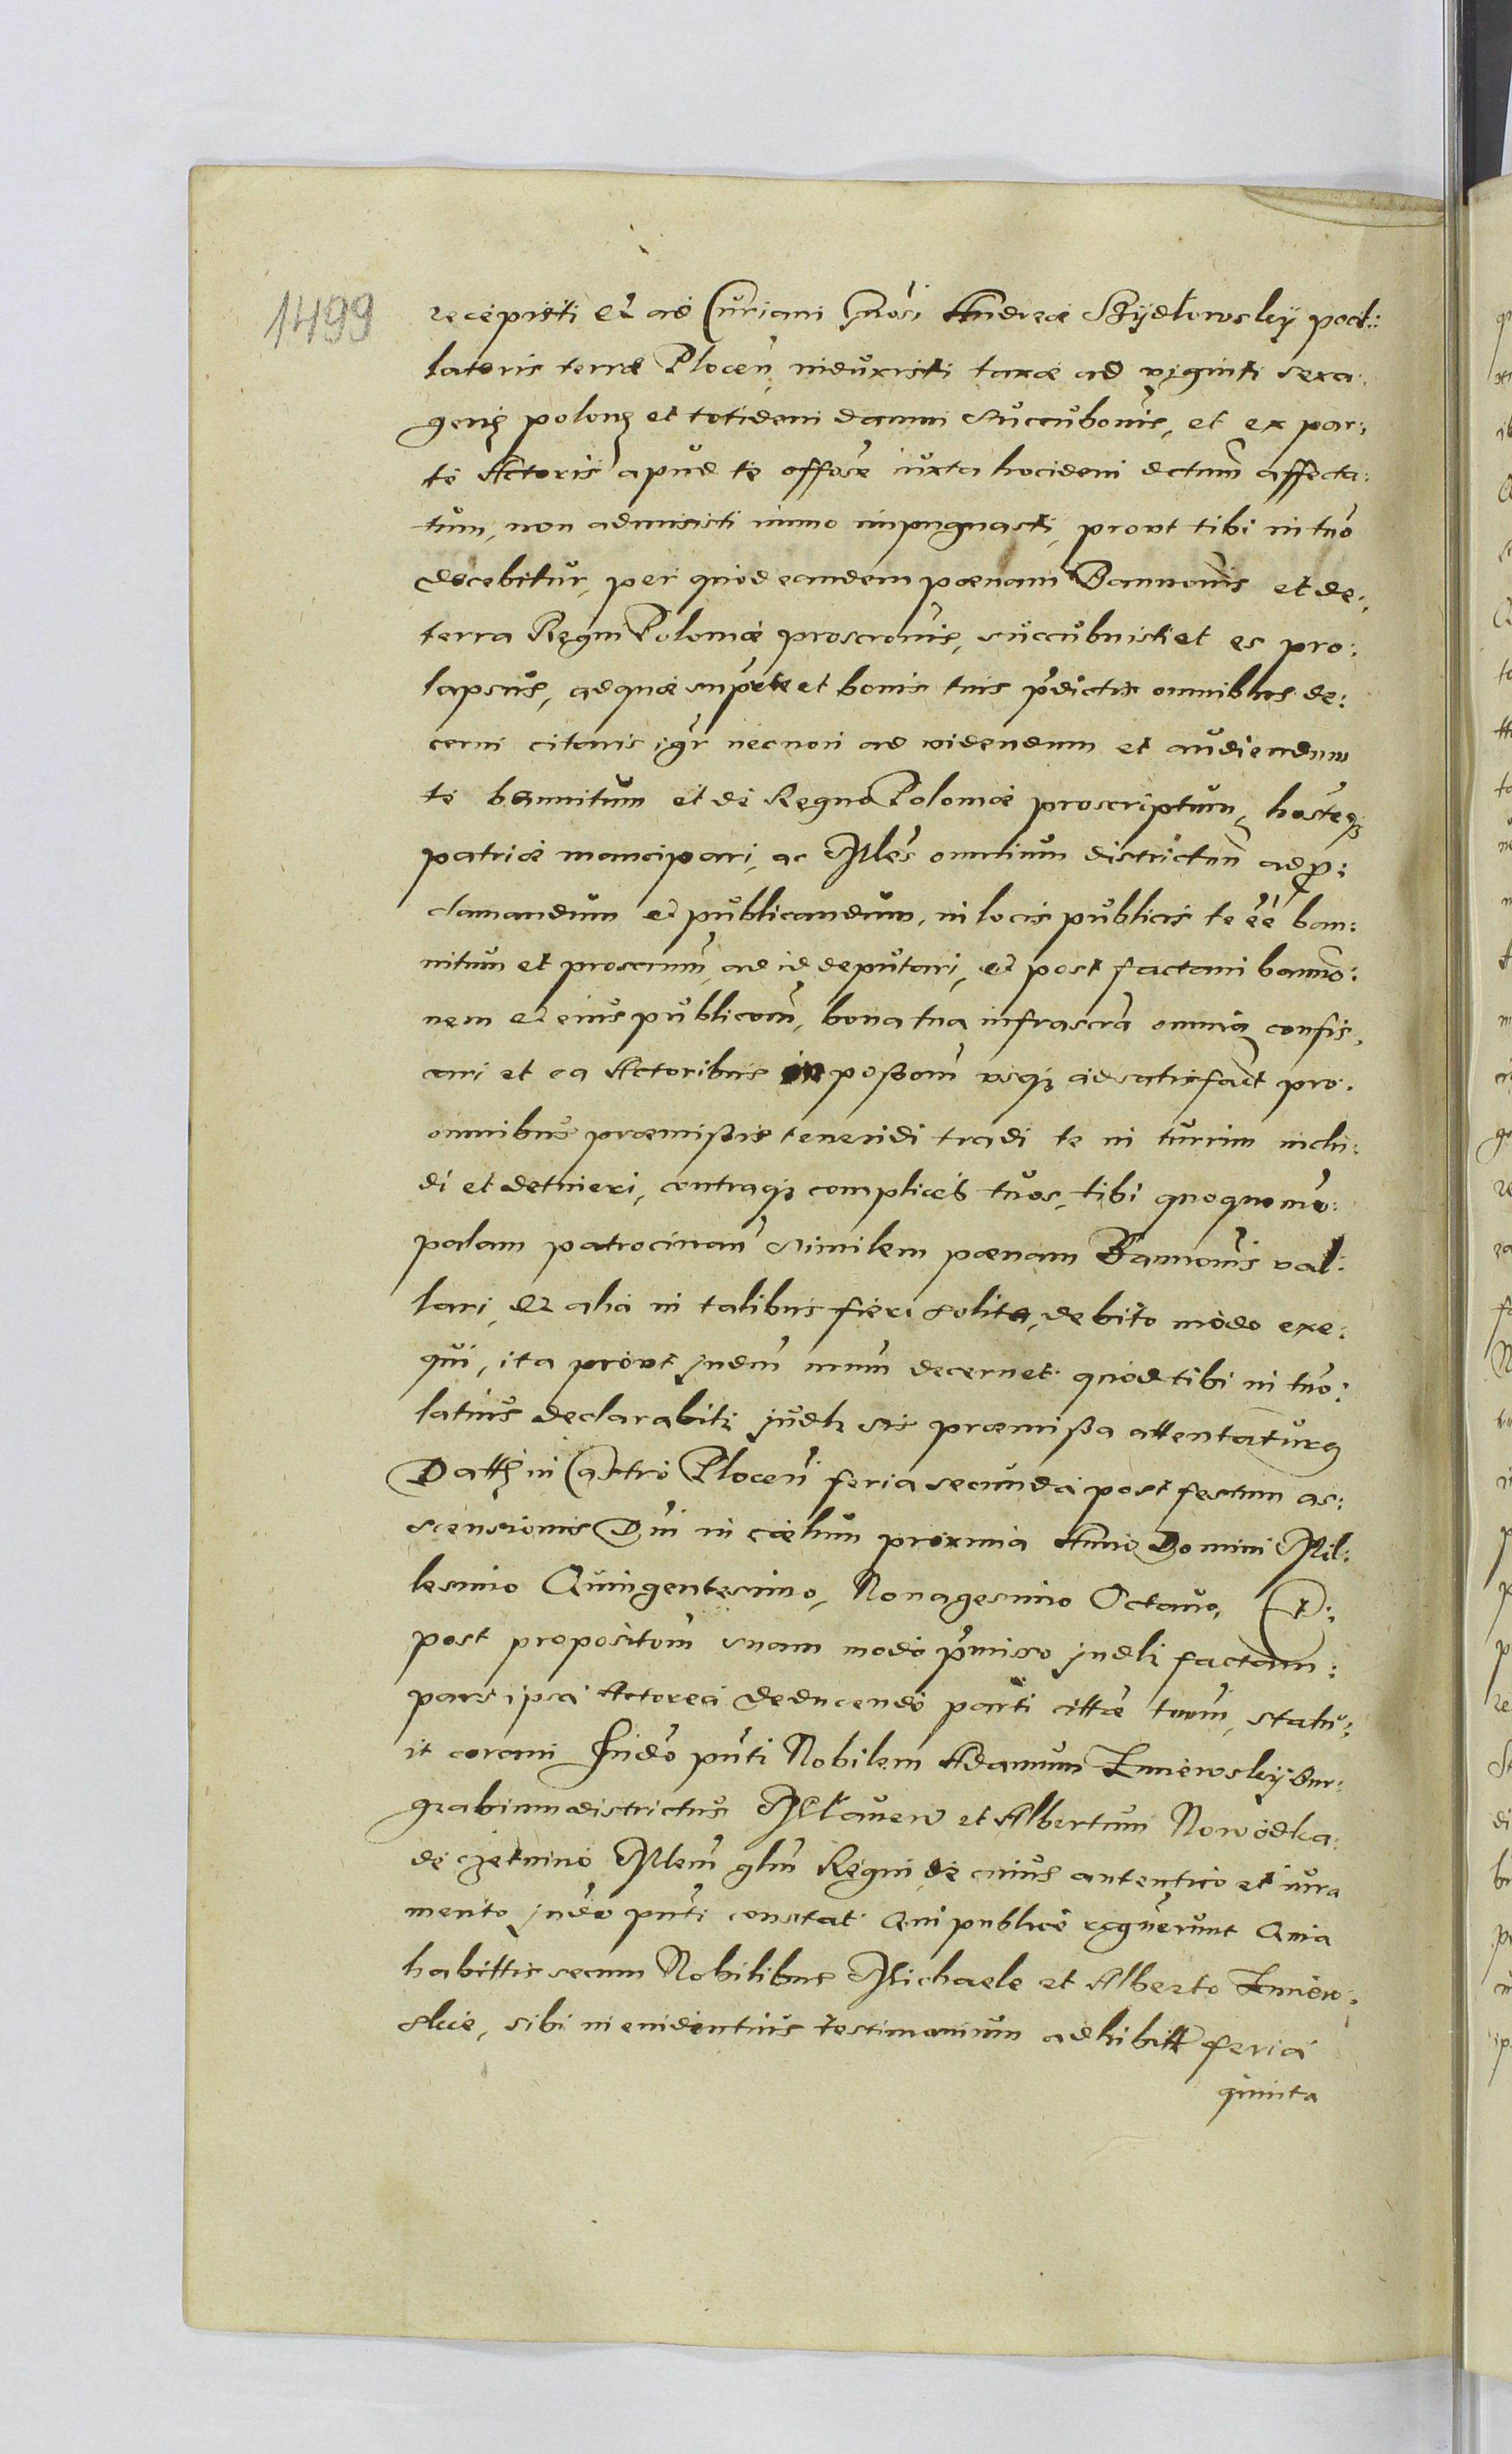 1499
recepisti et ad Curiam Gnosi Andreæ Szÿdlowskÿ pocil:
latoris terræ Plocen̄ induxisti taxæ ad viginti sexa:
genꝫ polonꝫ et totidem damni succubonis, et ex par:
te Actoris apud te officiose iuxta hocidem dctum affecta:
tum, non admisisti immo impugnasti, prout tibi in tno
docebitur, per quod eandem pœnam Bannonis et de:
terra Regni Poloniæ proscronis, succubuisti et es pro:
lapsus, ad quæ super te et bonis tuis p̄dictis omnibus de:
cerni citaris igr necnon ad videndum et audiendum
te bannitum et de Regno Poloniæ proscriptum, hosteqꝫ
patriæ mancipari, ac Mles omnium districtuū ad p:
clamandum et publicandum, in locis publicis te ēē ban:
nitum et proscrum, ad id deputari, et post factam banno:
nem et eius publicom̄, bona tua infrascra omnia confis:
cari et ea Actoribus in possom̄ usqꝫ ad satisfact pro:
omnibus præmissis tenendi tradi te in turrim inclu:
di et detineri, contraqꝫ complices tuos, tibi quoquomō:
palam patrocinan̄ similem pœnam Bannonis val:
lari, et alia in talibus fieri solita, debito modo exe:
qui, ita prout judm̄ nrum decernet quod tibi in tno:
latius declarabitꝫ judlꝫ sis præmissa attentaturꝫ
Dattꝫ in Castro Plocen̄ feria secunda post festum as:
scensionis Dn̄i in cælum proxima Anno Domini Mil:
lesimo Quingentesimo, Nonagesimo Octavo,
post propositom̄ suam modo p̄misso judli factam:
pars ipsa Actorea deducendo parti cittæ tnom̄, statu:
it coram Judō pn̄ti Nobilem Adamum Zmiewskÿ Bur:
grabium districtus Mlaven et Albertum Nowodka
de Czetnino Mlem̄ glm̄ Regni de cuius autentico et iura
mento judō pn̄ti constat Qui publice rcgnerunt Quia
habittis secum Nobilibus Michaele et Alberto Zmiew:
skie, sibi in evidentius testimonium adhibitt feria
quinta